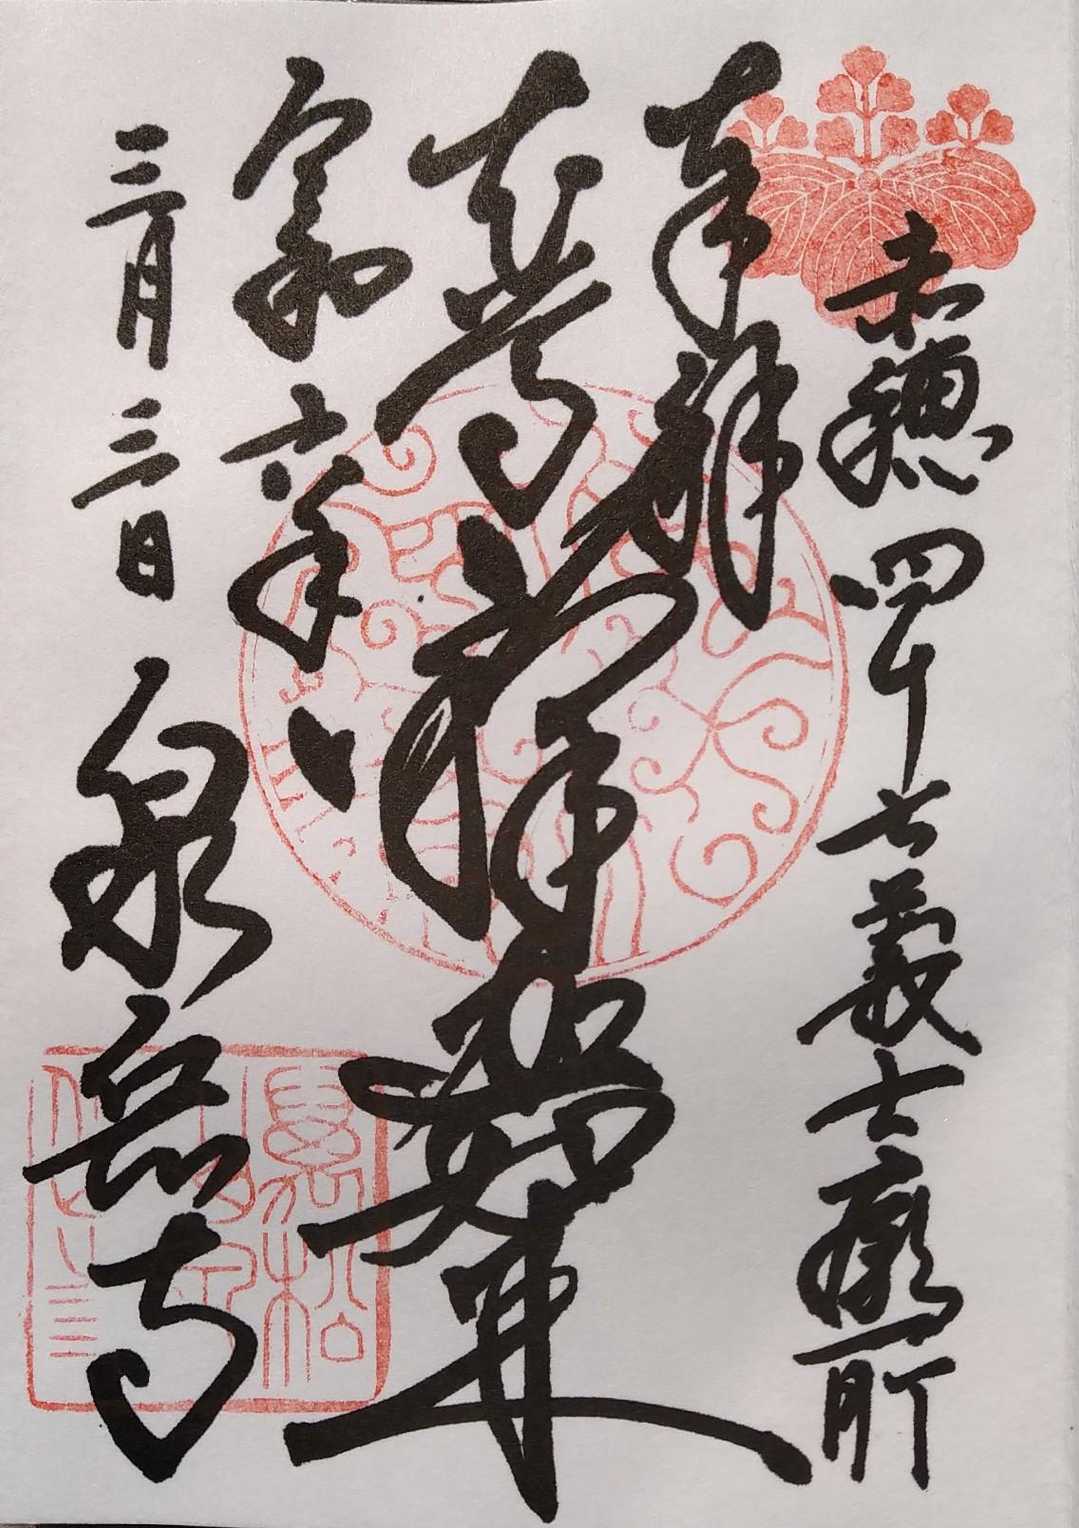 赤穂四十七義士廟所
奉拝
本尊釋迦如来
令和六年
三月三日 泉岳寺